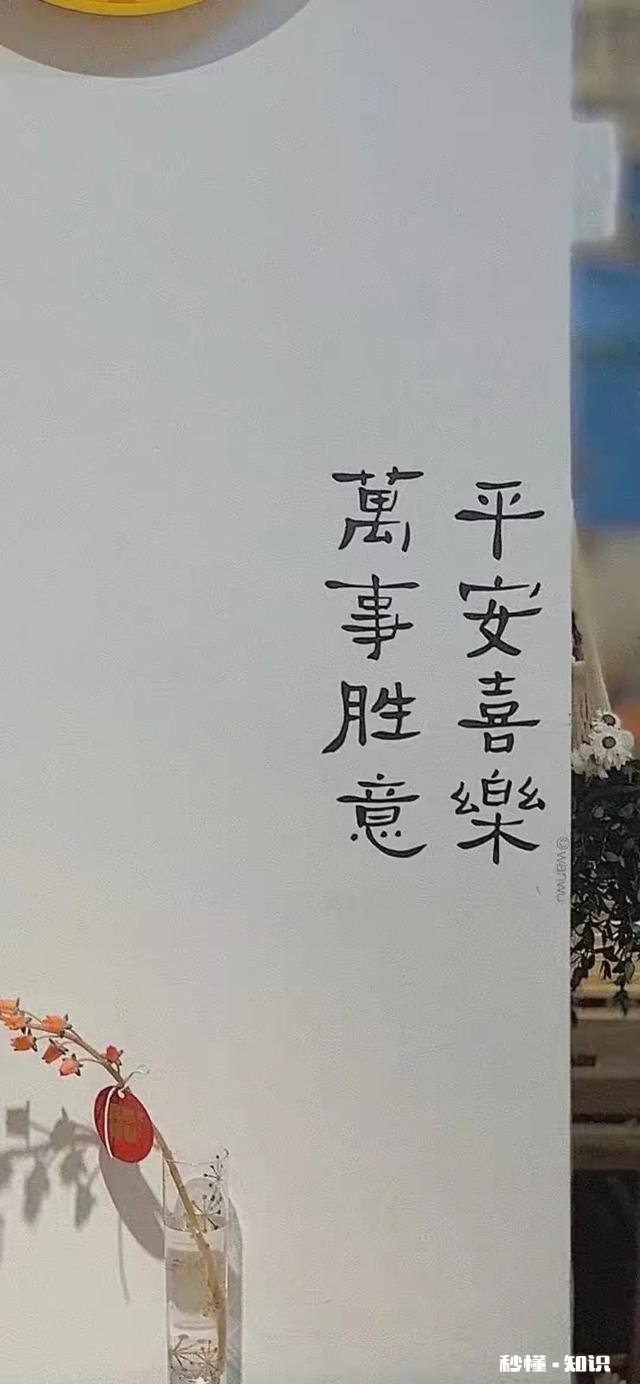 平安喜樂
萬事胜意
@wanwu
秒懂·知识